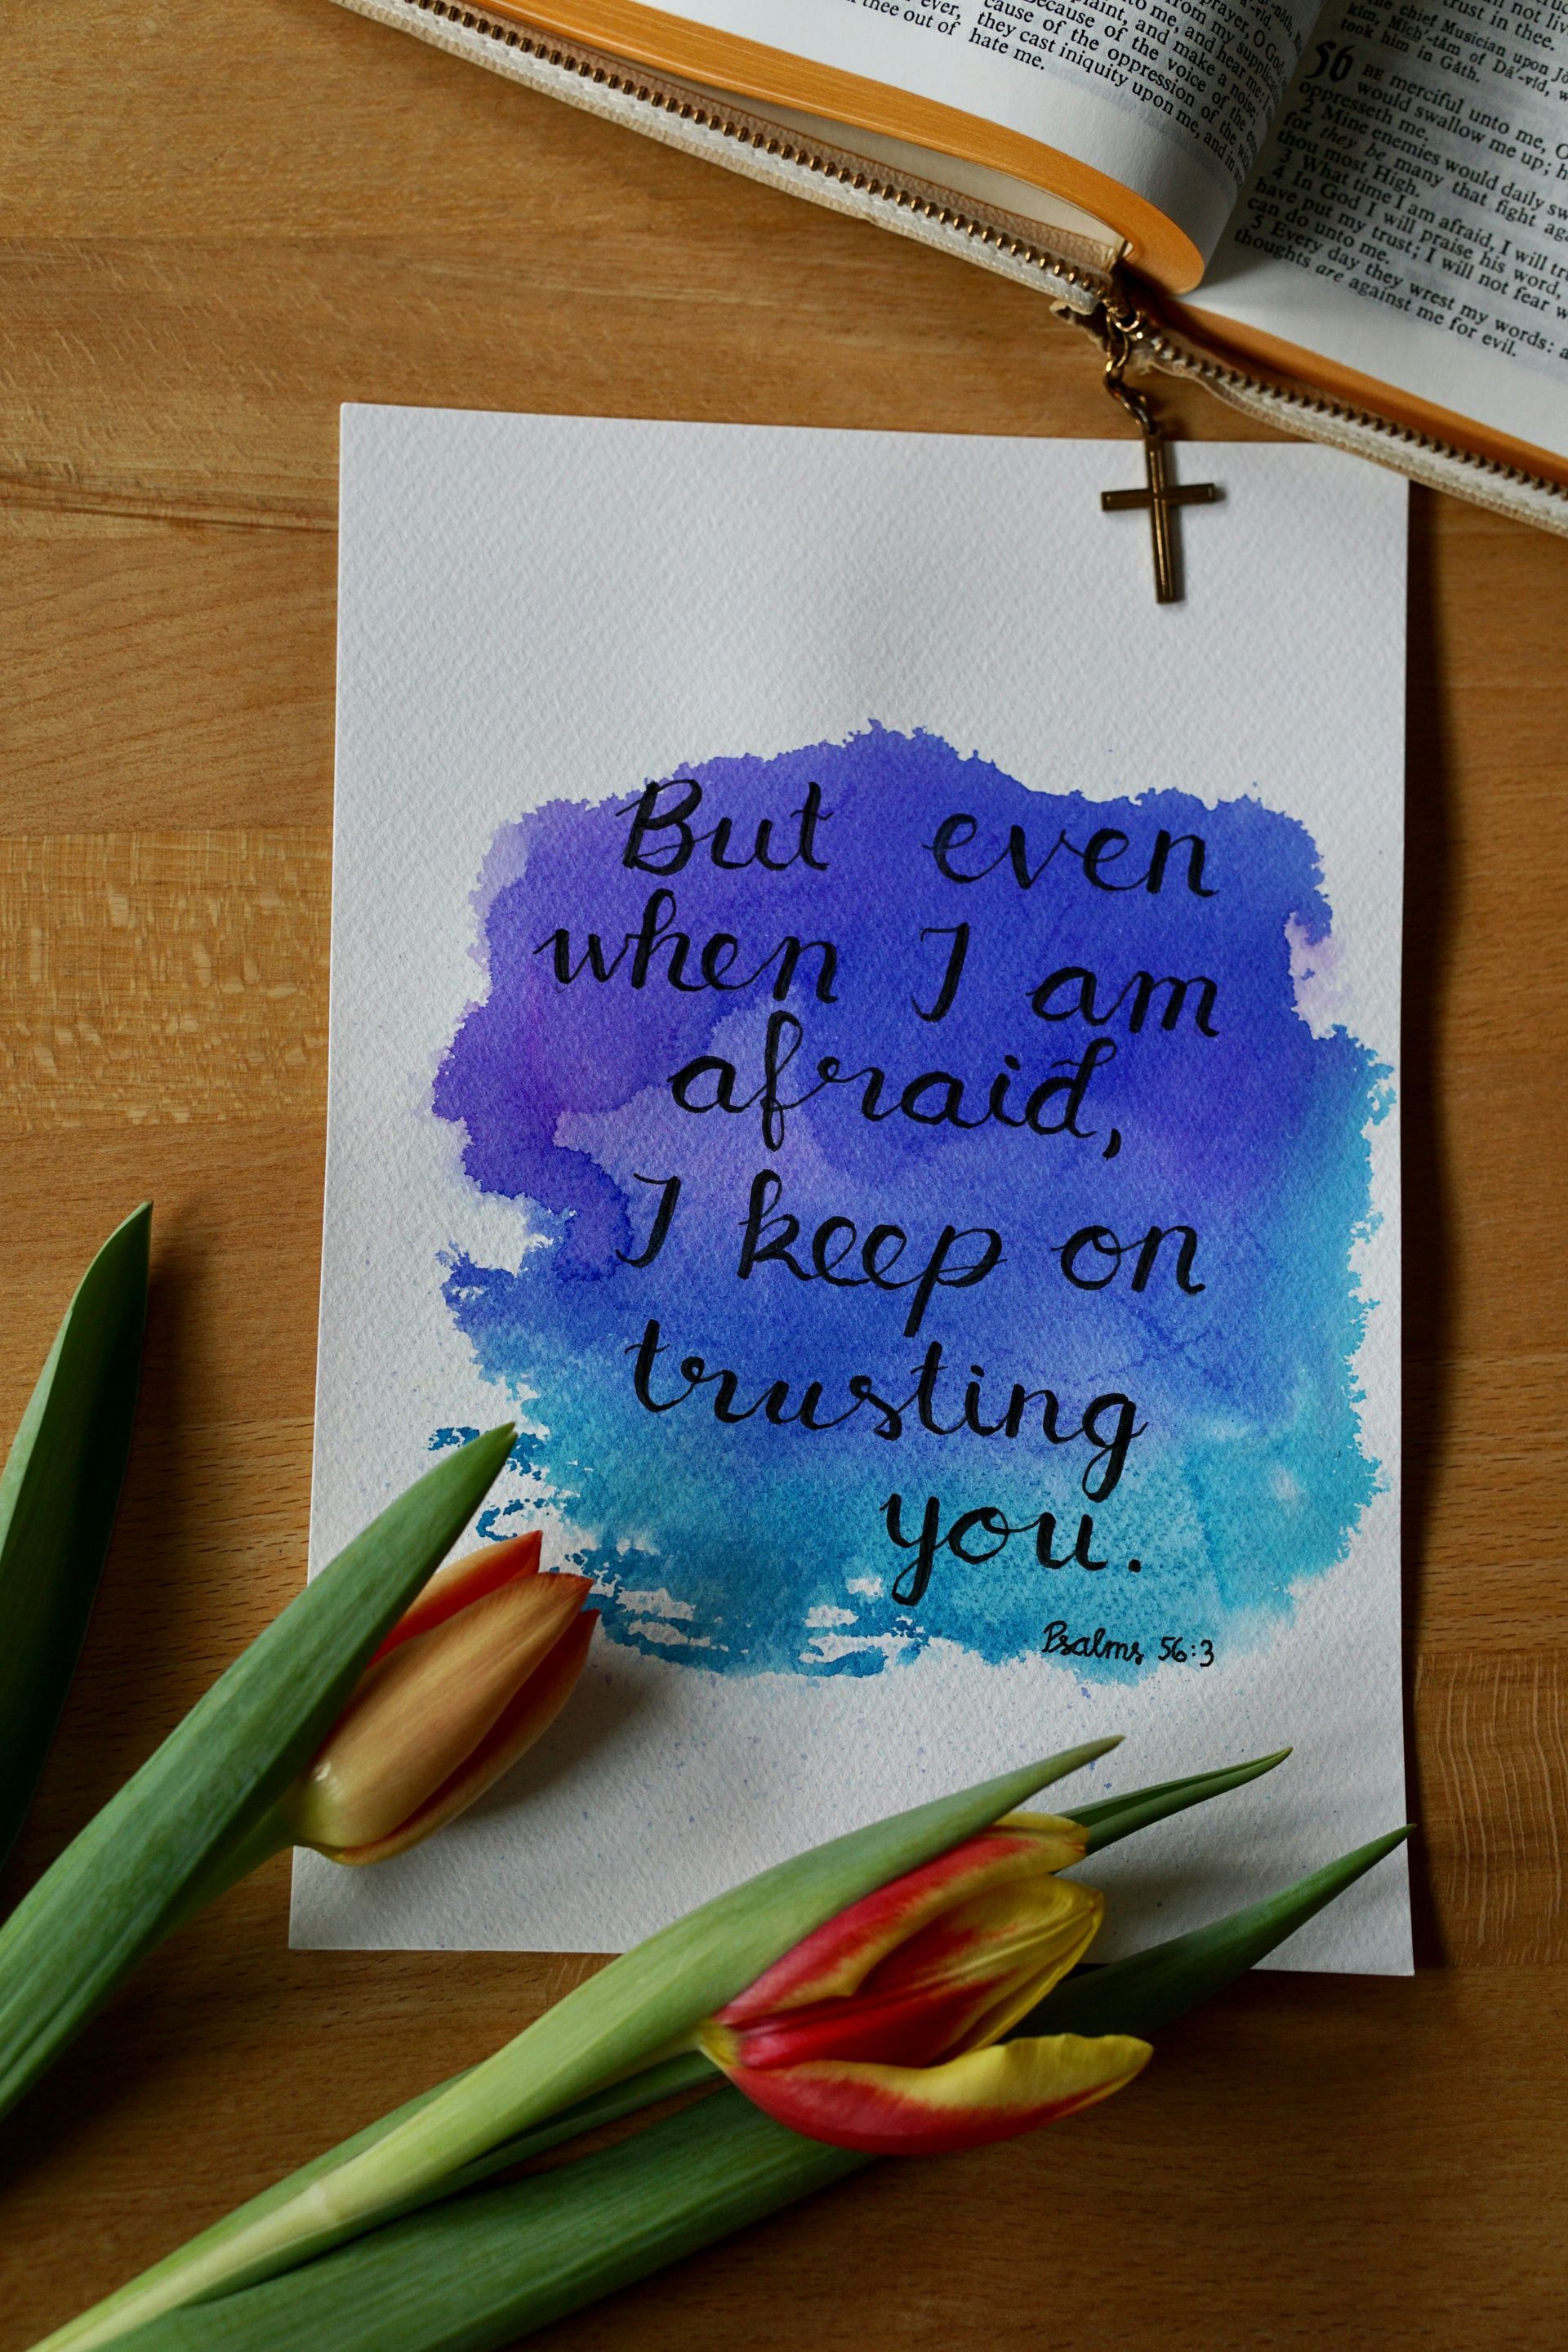 thee out of
prayer, O God
from my
me, and hear me: I
and make a noise;
Because of the voice of the
cause of the oppression of the
they cast iniquity upon me, and in
hate me.
not
trust in thee.
the chief Musician upon
kim, Mĭch'-tăm of Dā'-vĭd,
took him in Găth.
56 BE merciful unto me, O
would swallow me up;
oppresseth me.
2 Mine enemies would daily
for they be many that fight
thou most High.
3 What time I am afraid, I will
4 In God I will praise his word,
have put my trust; I will not fear
can do unto me.
5 Every day they wrest my words:
thoughts are against me for evil.
But even
when I am
afraid,
I keep on
trusting
you.
Psalms 56:3